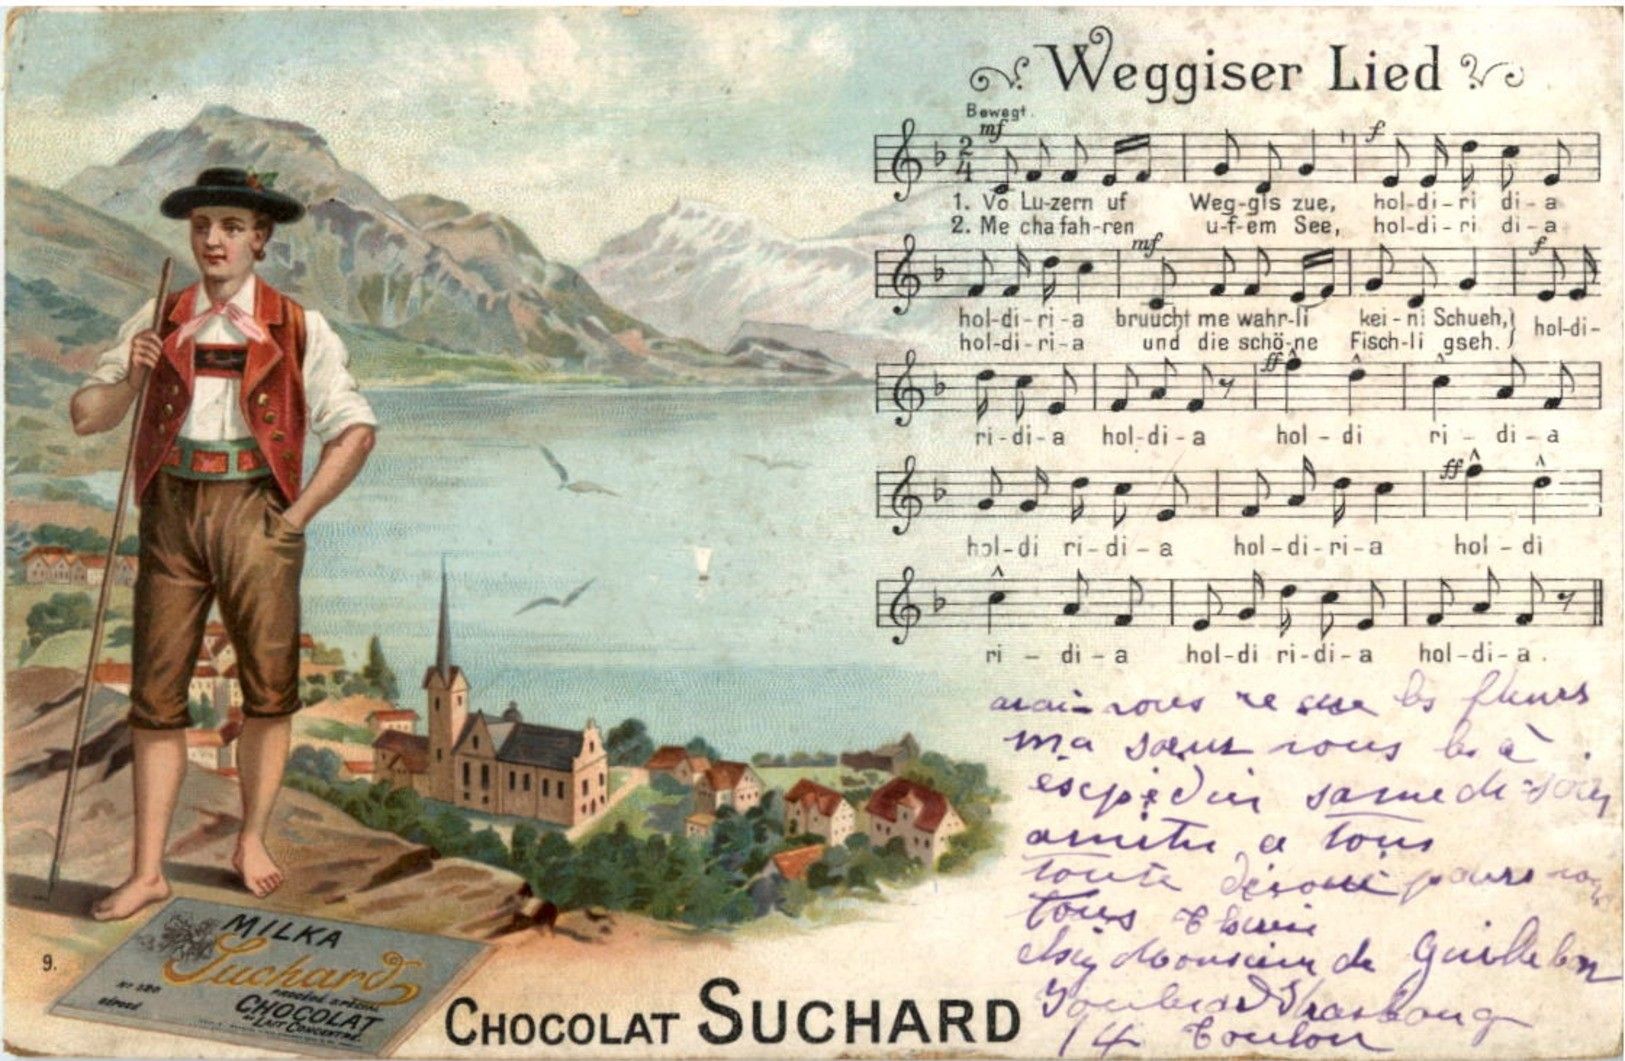 Weggiser Lied
Bewegt.
mf
f
1. Vo Lu-zern uf Weg-gis zue, hol-di-ri di-a
2. Me cha fah-ren u-f-em See, hol-di-ri di-a
mf
f
hol-di-ri-a bruucht me wahr-li kei-ni Schueh, hol-di-
hol-di-ri-a und die schö-ne Fisch-li gseh.
ff
ri-di-a hol-di-a hol-di ri-di-a
ff
hol-di ri-di-a hol-di-ri-a hol-di
ri-di-a hol-di ri-di-a hol-di-a.
les fleurs
ma sœur vous les à
amitié a tous
toute pour
tous
Monsieur de
Strasbourg
14 Toulon
9.
MILKA
Suchard
No 120
PROCÉDÉ SPÉCIAL
DÉPOSÉ
CHOCOLAT
AU LAIT CONCENTRÉ.
CHOCOLAT SUCHARD